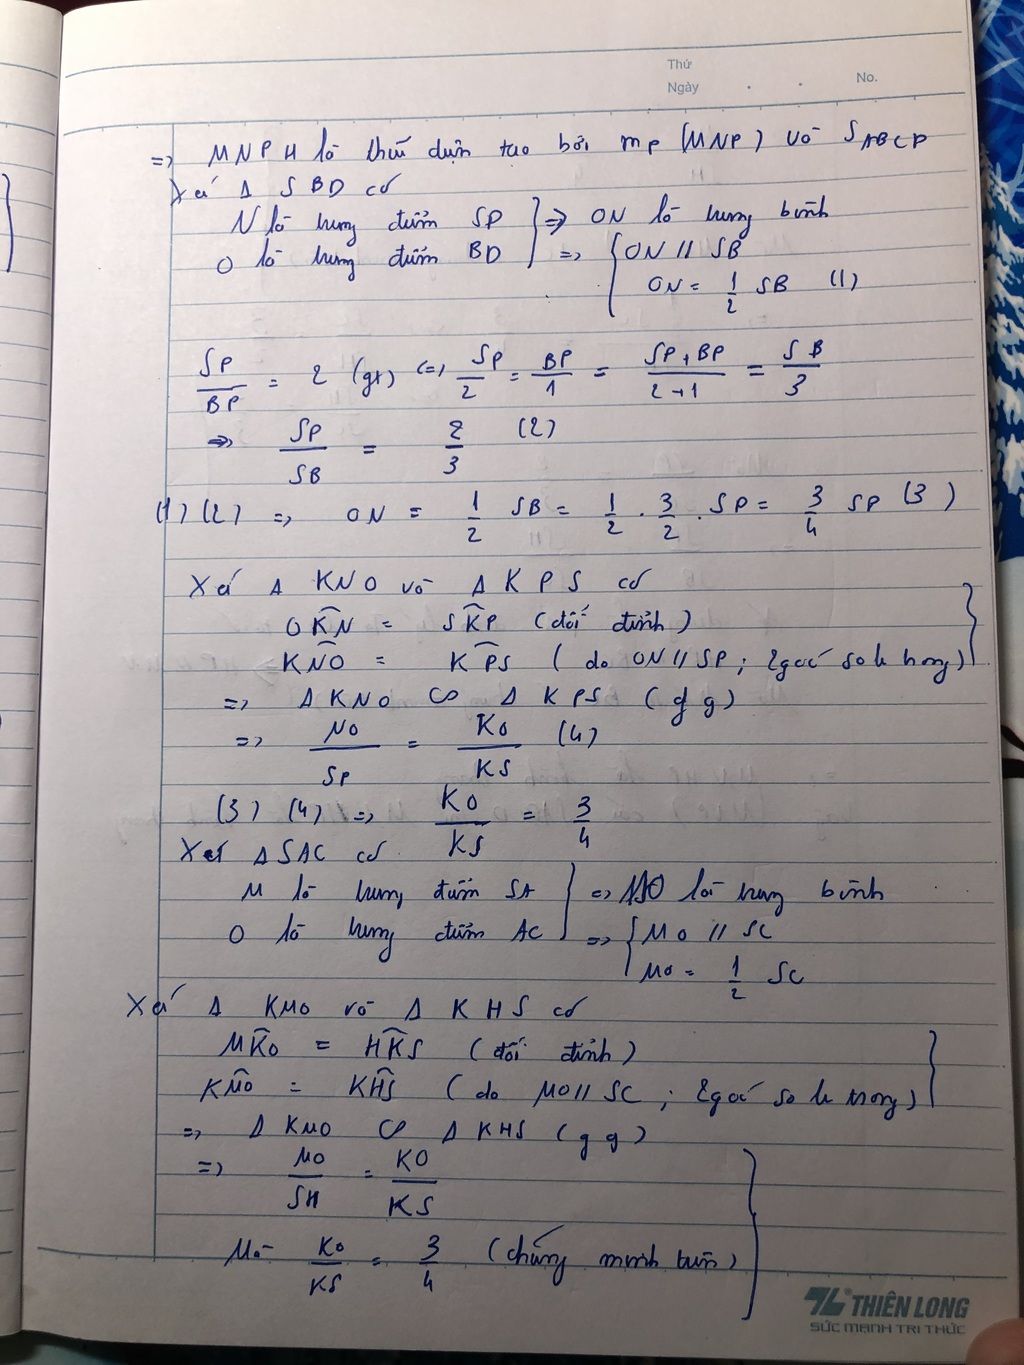 Thứ
Ngày . . No.
=> MNPH là thiết diện tạo bởi mp (MNP) và SABCD
Xét Δ SBD có
N là trung điểm SD } => ON là trung bình
O là trung điểm BD } => { ON // SB
ON = 1/2 SB (1)
SP/BP = 2 (gt) <=> SP/2 = BP/1 = SP+BP/2+1 = SB/3
=> SP/SB = 2/3 (2)
(1) (2) => ON = 1/2 SB = 1/2 . 3/2 . SP = 3/4 SP (3)
Xét Δ KNO và Δ KPS có
OKN = SKP (đối đỉnh)
KNO = KPS (do ON // SP; 2 góc so le trong) }
=> Δ KNO ∽ Δ KPS (g g)
=> NO/SP = KO/KS (4)
(3) (4) => KO/KS = 3/4
Xét Δ SAC có
M là trung điểm SA } => MO là trung bình
O là trung điểm AC } => { MO // SC
MO = 1/2 SC
Xét Δ KMO và Δ KHS có
MKO = HKS (đối đỉnh)
KMO = KHS (do MO // SC; 2 góc so le trong) }
=> Δ KMO ∽ Δ KHS (g g)
=> MO/SH = KO/KS
Mà KO/KS = 3/4 (chứng minh trên) }
THIÊN LONG
SỨC MẠNH TRI THỨC